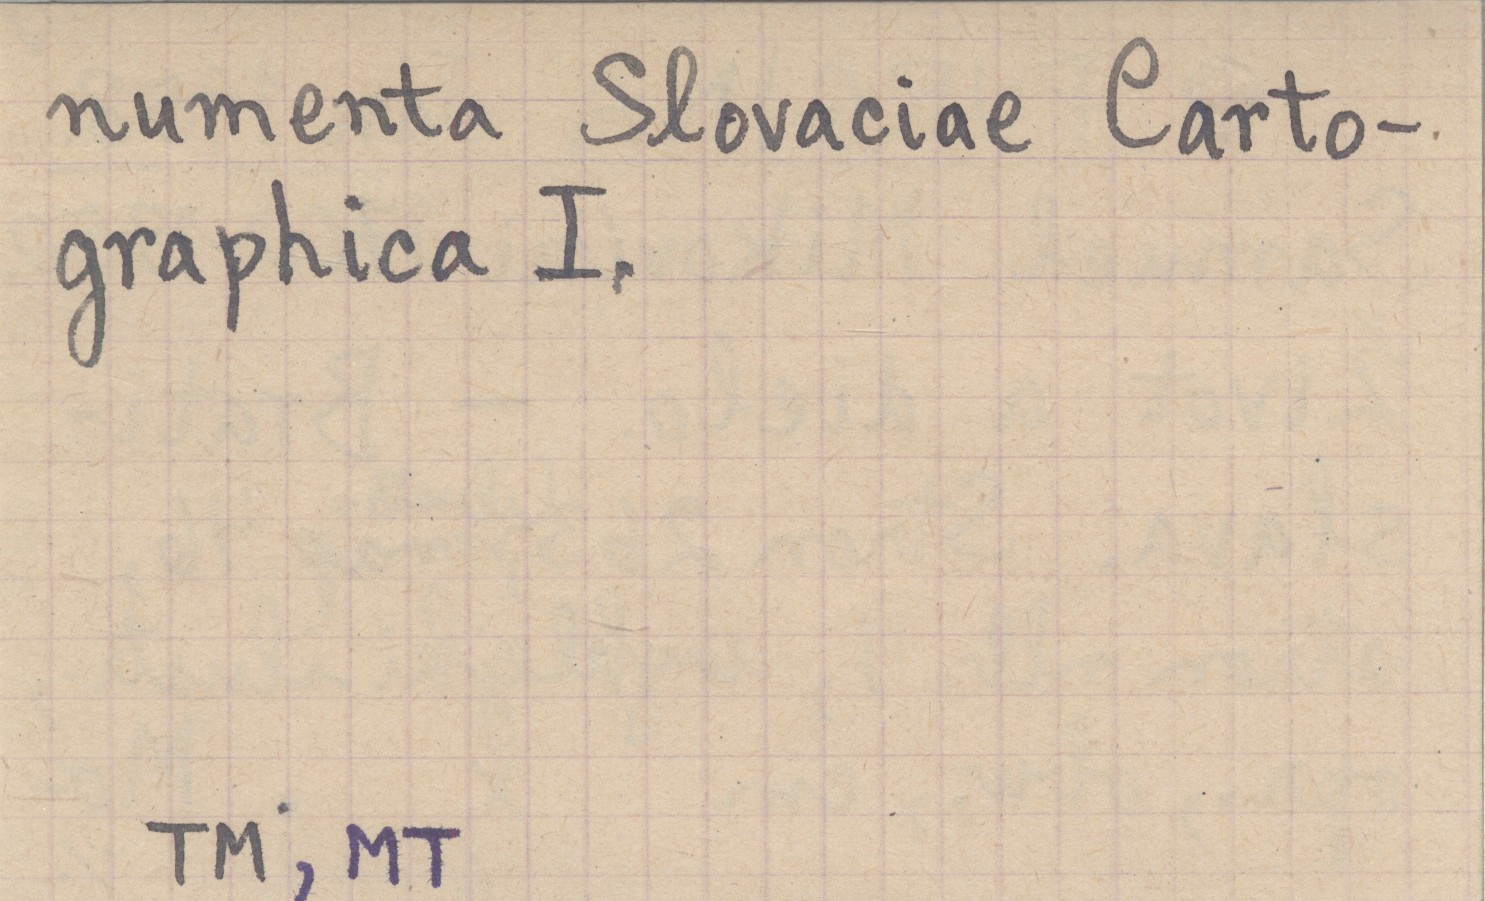 numenta Slovaciae Carto-
graphica I.
TM, MT